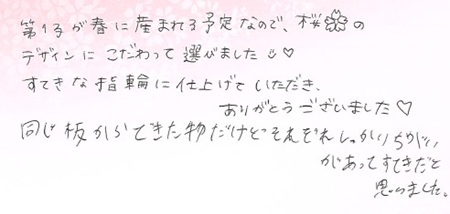 第1子が春に産まれる予定なので、桜🌸の
デザインにこだわって選びました☺♡
すてきな指輪に仕上げていただき、
ありがとうございました♡
同じ板からできた物だけどそれぞれしっかりちがい
があってすてきだと
思いました。